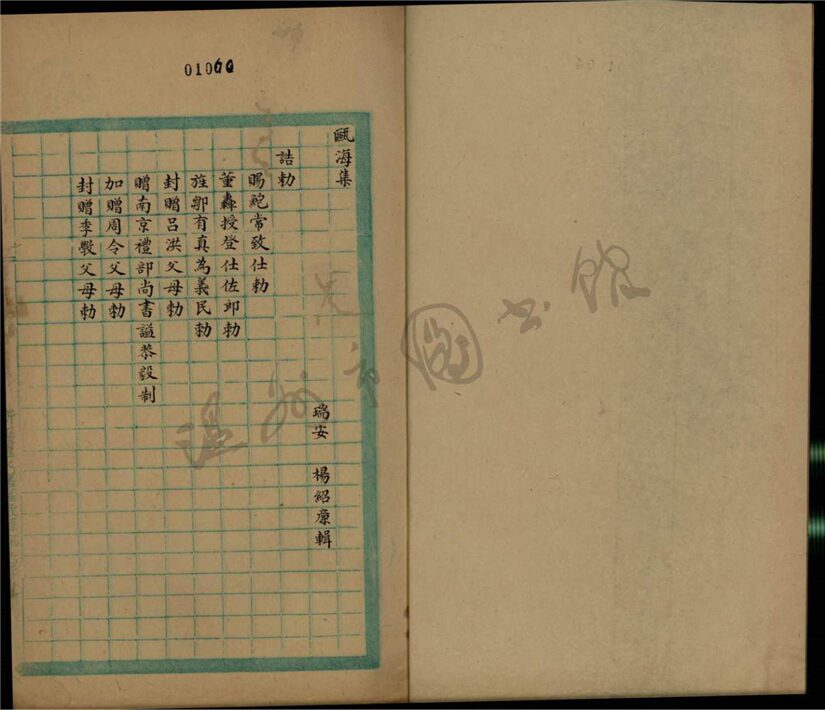 01060
甌海集
瑞安　楊紹廉輯
誥勅
賜鮑常致仕勅
董轟授登仕佐郎勅
旌鄔有真為義民勅
封贈呂洪父母勅
贈南京禮部尚書謚恭毅制
加贈周令父母勅
封贈季斅父母勅
温州市圖书館